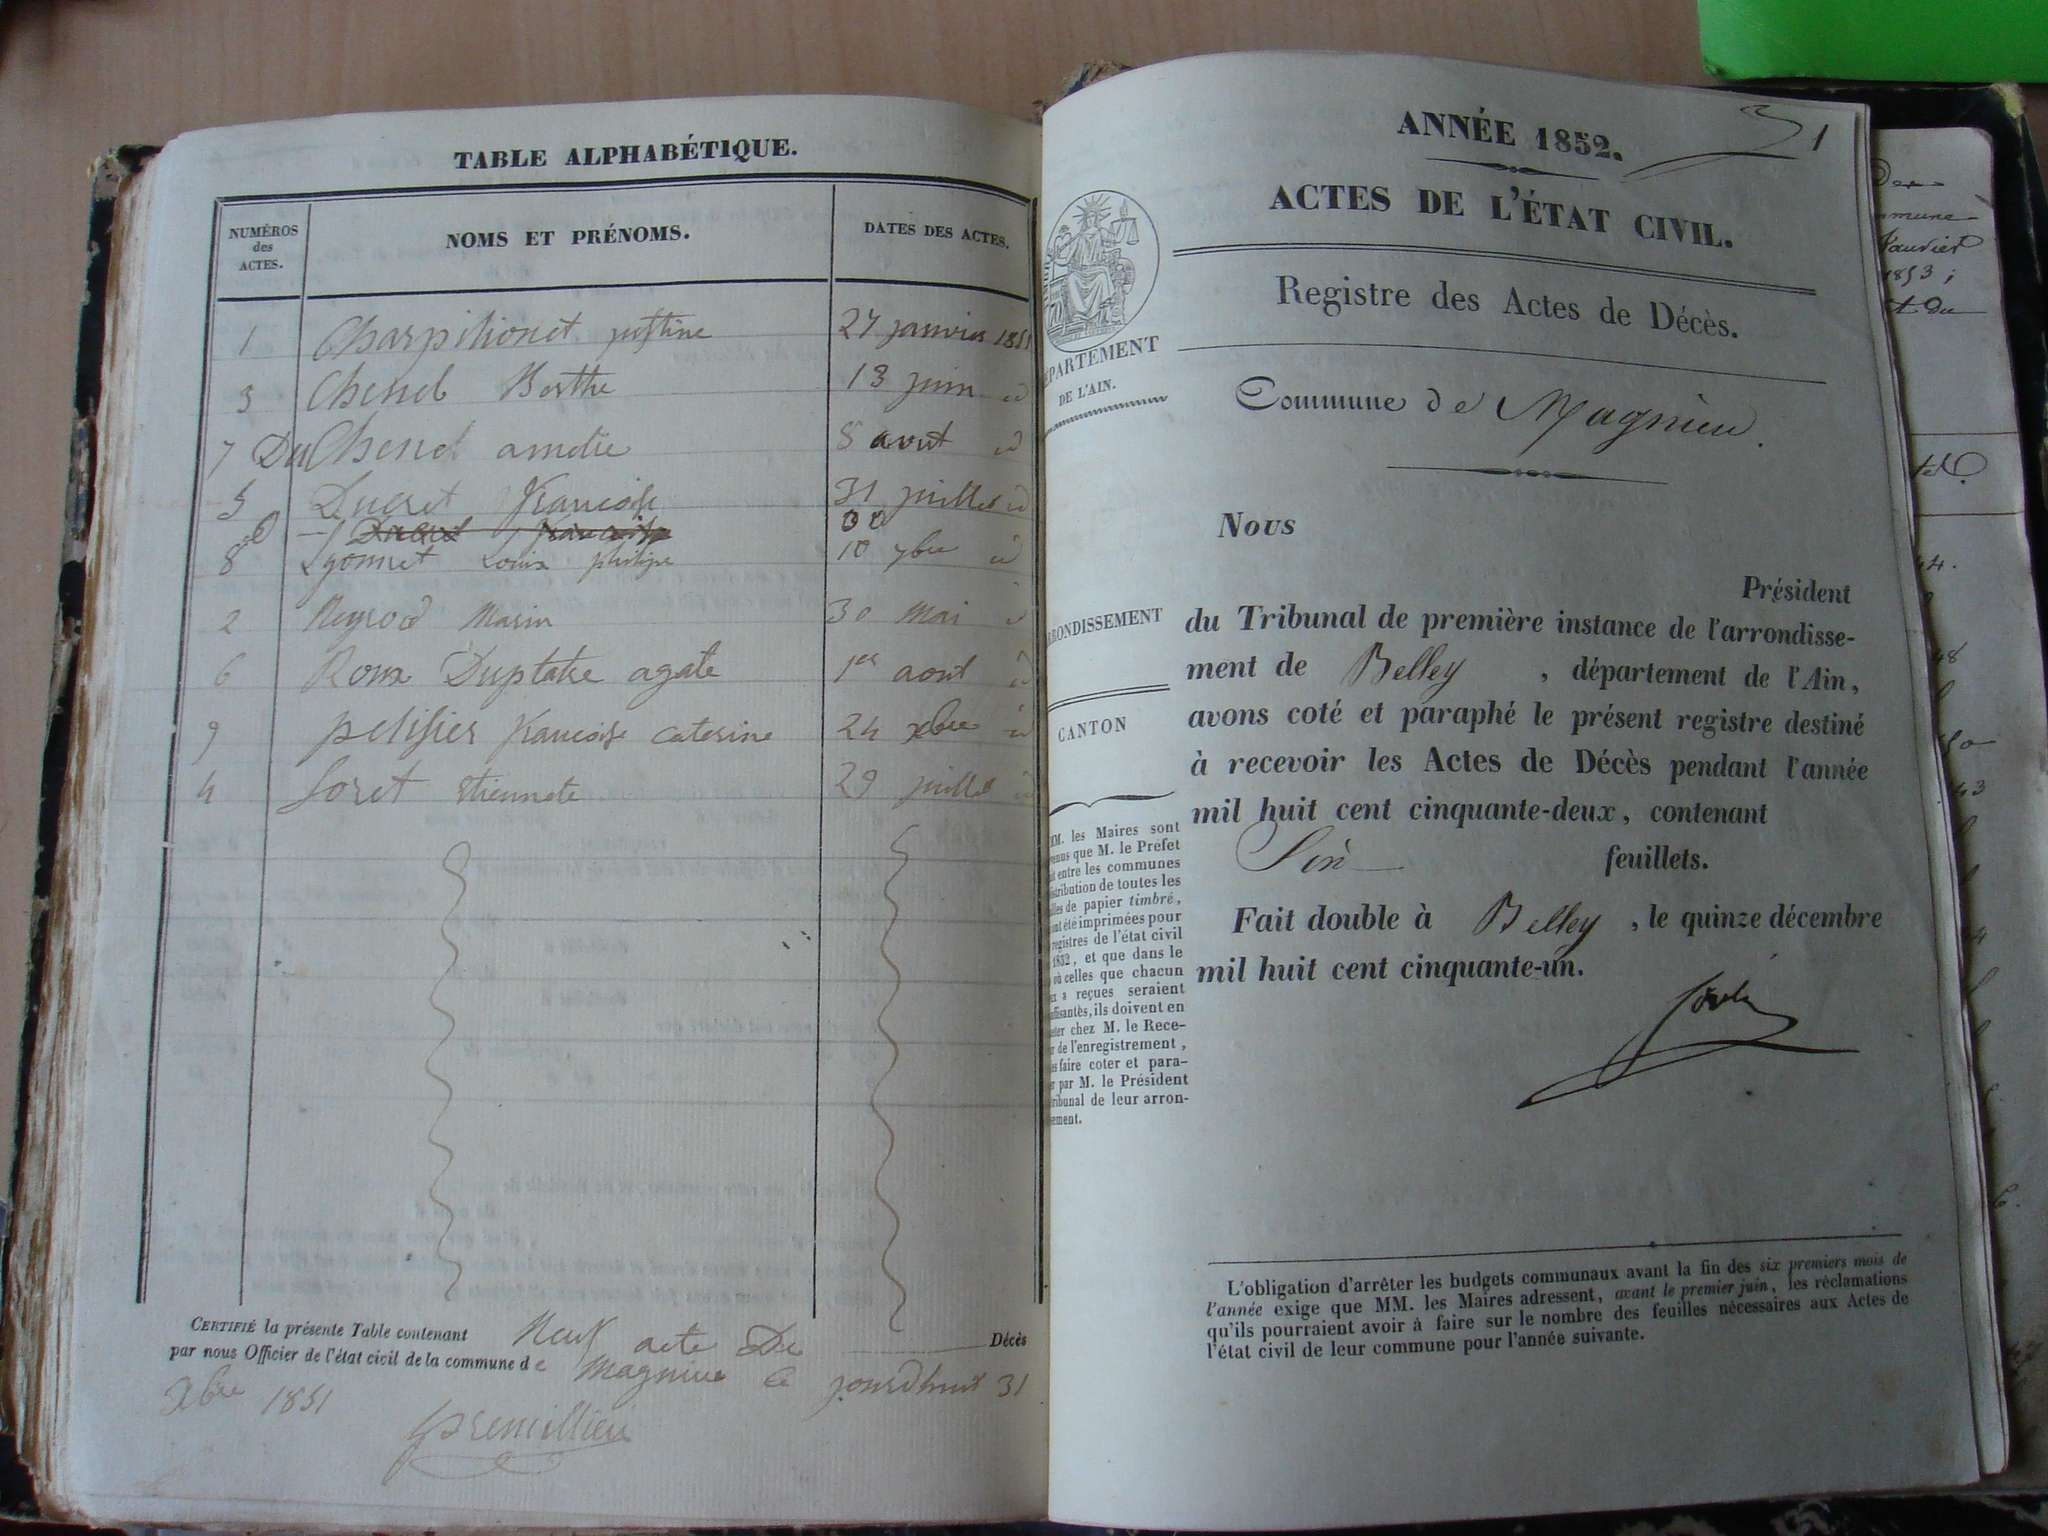 TABLE ALPHABÉTIQUE.
NUMÉROS des ACTES. NOMS ET PRÉNOMS. DATES DES ACTES.
1 Charpihonet justine 27 janvier 1851
3 Chenel Berthe 13 juin id
7 DuChenel amelie 8 aout id
5 Ducret francoise 31 juillet id
8 Lyonnet Louis philipe 10 7bre id
2 Neyrod Marin 30 mai id
6 Roux Duplatre agate 1er aout id
9 pelissier francoise caterine 24 xbre id
4 Soret etiennete 29 juillet id
CERTIFIÉ la présente Table contenant Neuf acte De Décès
par nous Officier de l'état civil de la commune de Magnieu Ce jourdhuit 31
Xbre 1851
ANNÉE 1852. 1
ACTES DE L'ÉTAT CIVIL.
Registre des Actes de Décès.
DÉPARTEMENT
DE L'AIN.
Commune de Magnieu.
Nous
Président
du Tribunal de première instance de l'arrondisse-
ment de Belley, département de l'Ain,
avons coté et paraphé le présent registre destiné
à recevoir les Actes de Décès pendant l'année
mil huit cent cinquante-deux, contenant
Six feuillets.
Fait double à Belley, le quinze décembre
mil huit cent cinquante-un.
RRONDISSEMENT
CANTON
MM. les Maires sont
venus que M. le Préfet
it entre les communes
istribution de toutes les
lles de papier timbré,
ont été imprimées pour
registres de l'état civil
1852, et que dans le
où celles que chacun
ux a reçues seraient
uffisantes, ils doivent en
eter chez M. le Rece-
r de l'enregistrement,
es faire coter et para-
r par M. le Président
tribunal de leur arron-
sement.
L'obligation d'arrêter les budgets communaux avant la fin des six premiers mois de
l'année exige que MM. les Maires adressent, avant le premier juin, les réclamations
qu'ils pourraient avoir à faire sur le nombre des feuilles nécessaires aux Actes de
l'état civil de leur commune pour l'année suivante.
1853;
et du